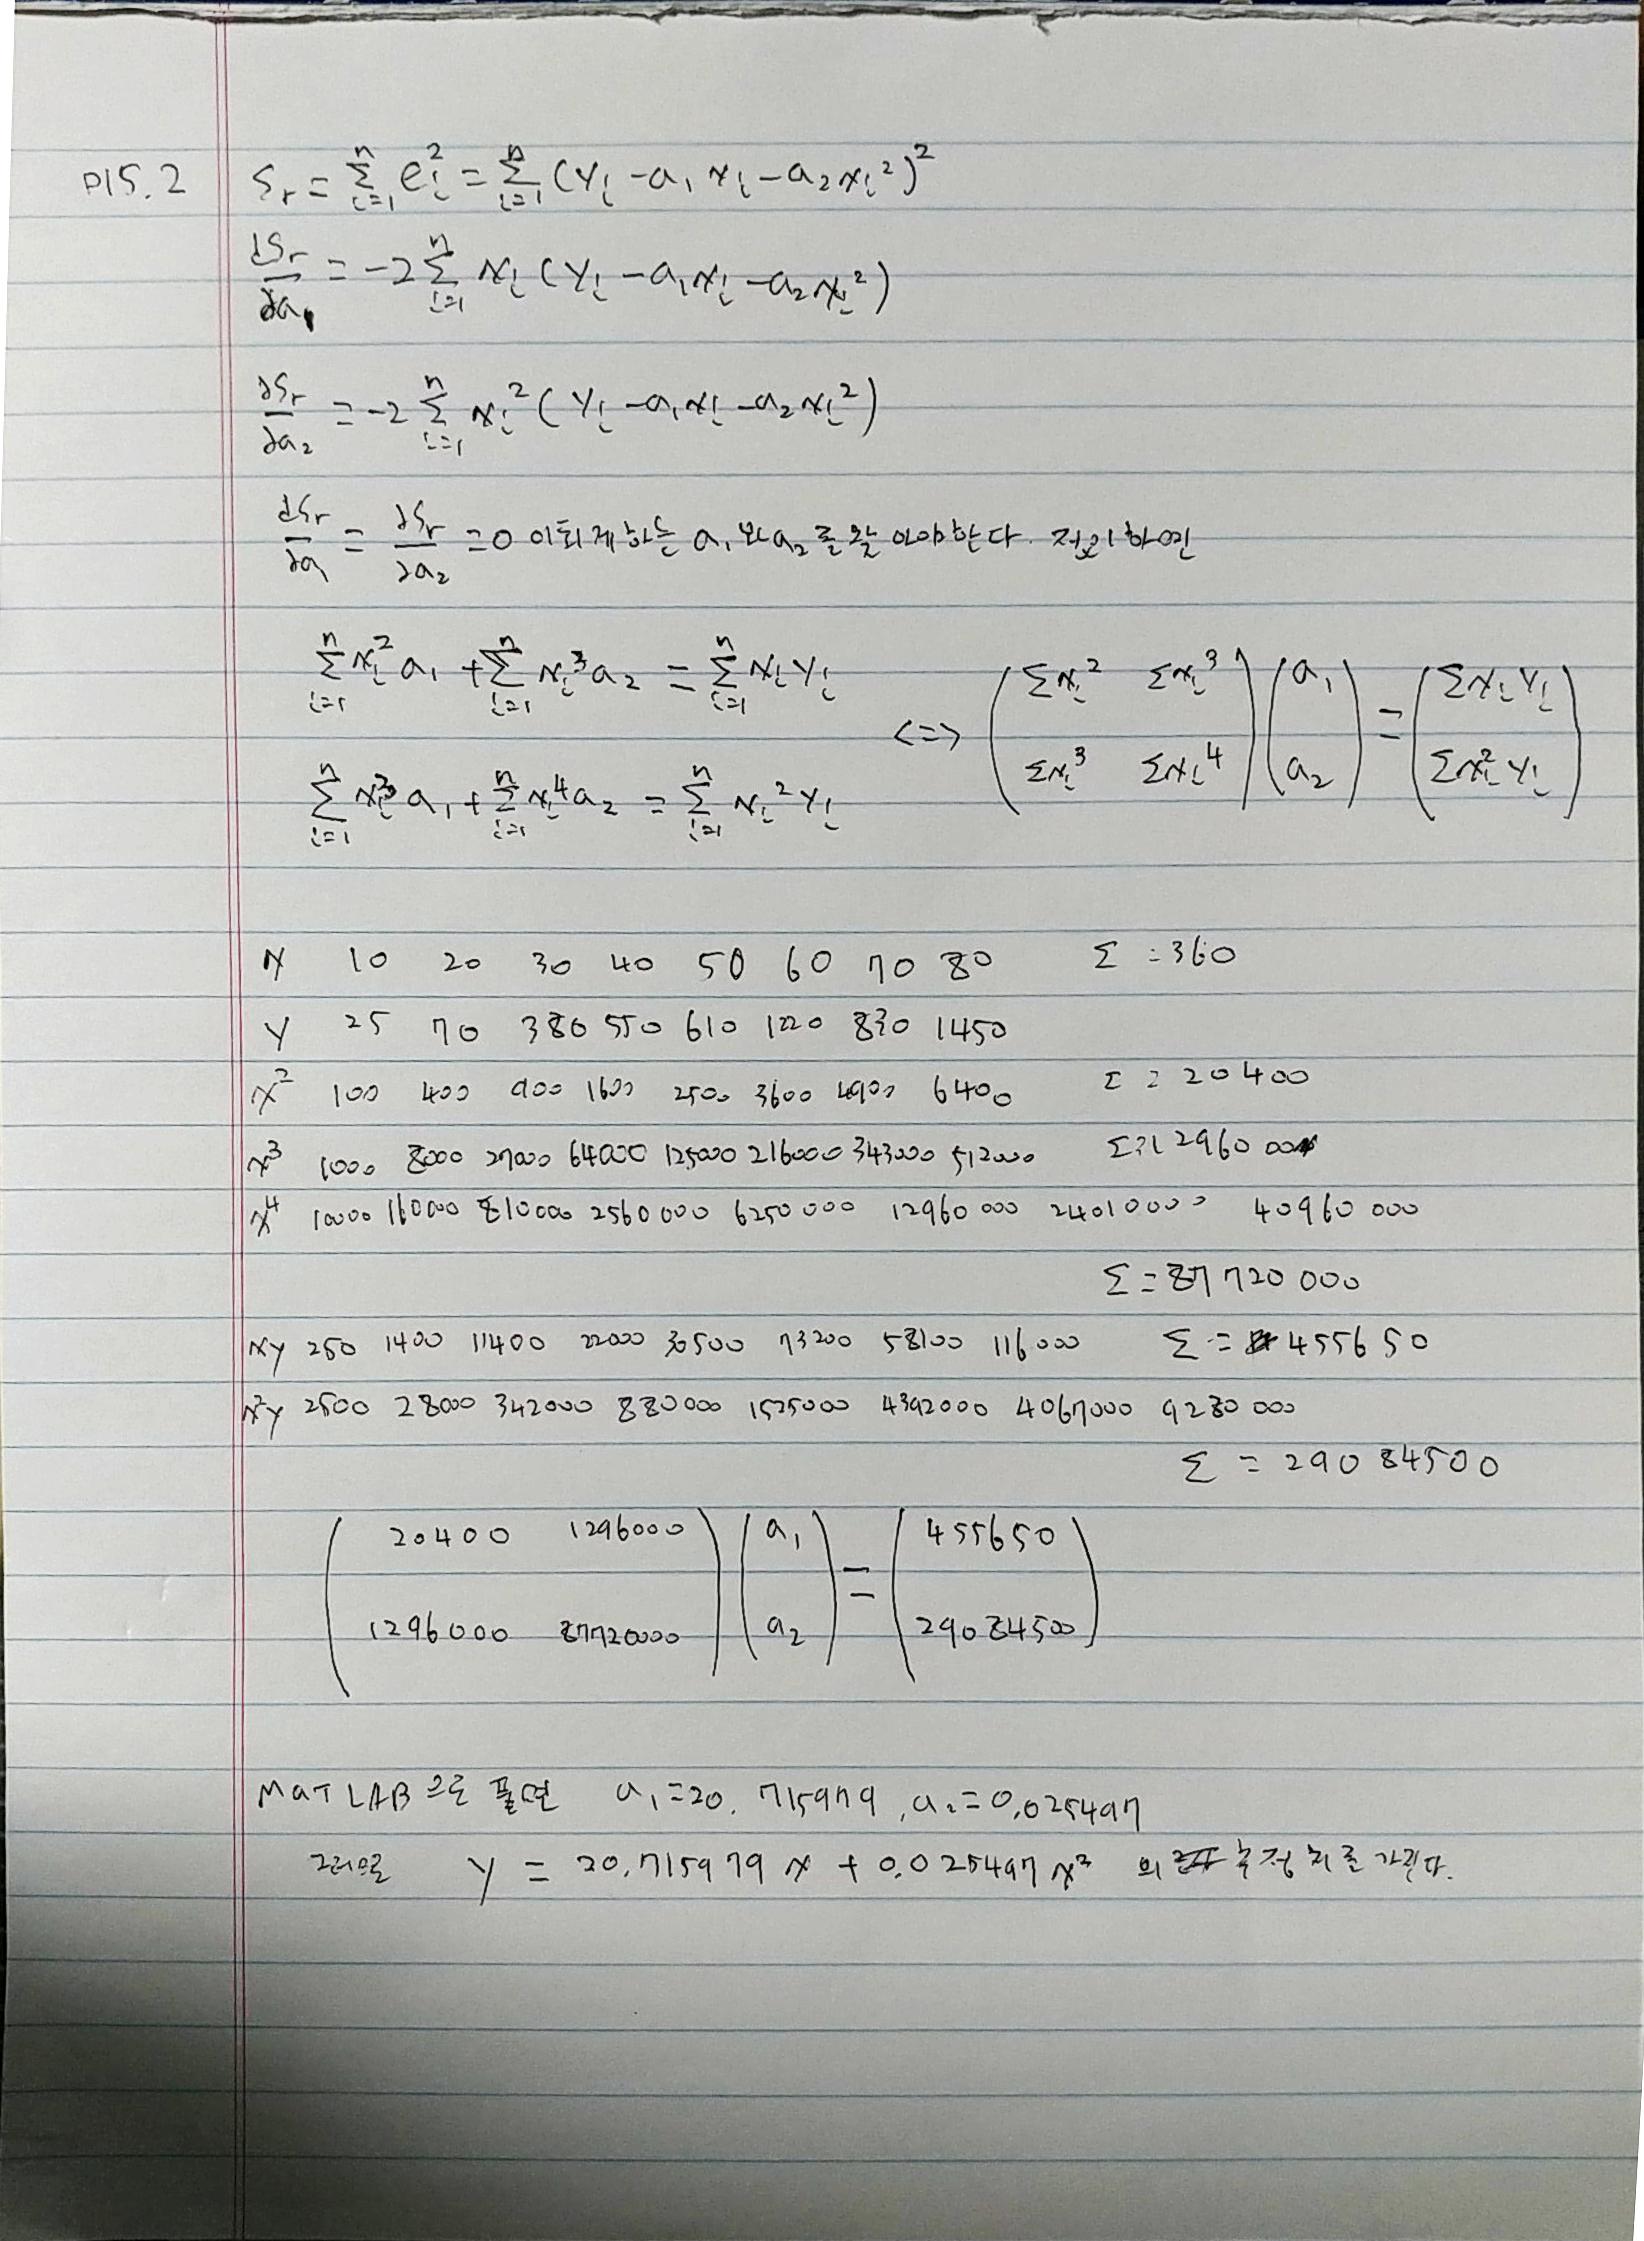 P15.2 Sr = Σ_{i=1}^{n} ei² = Σ_{i=1}^{n} (yi - a₁xi - a₂xi²)²
∂Sr/∂a₁ = -2 Σ_{i=1}^{n} xi (yi - a₁xi - a₂xi²)
∂Sr/∂a₂ = -2 Σ_{i=1}^{n} xi² (yi - a₁xi - a₂xi²)
∂Sr/∂a₁ = ∂Sr/∂a₂ = 0 이 되게 하는 a₁ 와 a₂ 를 찾아야한다. 정리하면
Σ_{i=1}^{n} xi² a₁ + Σ_{i=1}^{n} xi³ a₂ = Σ_{i=1}^{n} xi yi
Σ_{i=1}^{n} xi³ a₁ + Σ_{i=1}^{n} xi⁴ a₂ = Σ_{i=1}^{n} xi² yi
<=> (Σxi² Σxi³ ; Σxi³ Σxi⁴) (a₁ ; a₂) = (Σxi yi ; Σxi² yi)
x 10 20 30 40 50 60 70 80 Σ = 360
y 25 70 380 550 610 1220 830 1450
x² 100 400 900 1600 2500 3600 4900 6400 Σ = 20400
x³ 1000 8000 27000 64000 125000 216000 343000 512000 Σ = 1296000
x⁴ 10000 160000 810000 2560000 6250000 12960000 24010000 40960000
Σ = 87720000
xy 250 1400 11400 22000 30500 73200 58100 116000 Σ = 455650
x²y 2500 28000 342000 880000 1525000 4392000 4067000 9280000
Σ = 29084500
(20400 1296000 ; 1296000 87720000) (a₁ ; a₂) = (455650 ; 29084500)
MATLAB으로 풀면 a₁ = 20.715979, a₂ = 0.025497
그러므로 y = 20.715979 x + 0.025497 x² 의 추정치를 가진다.